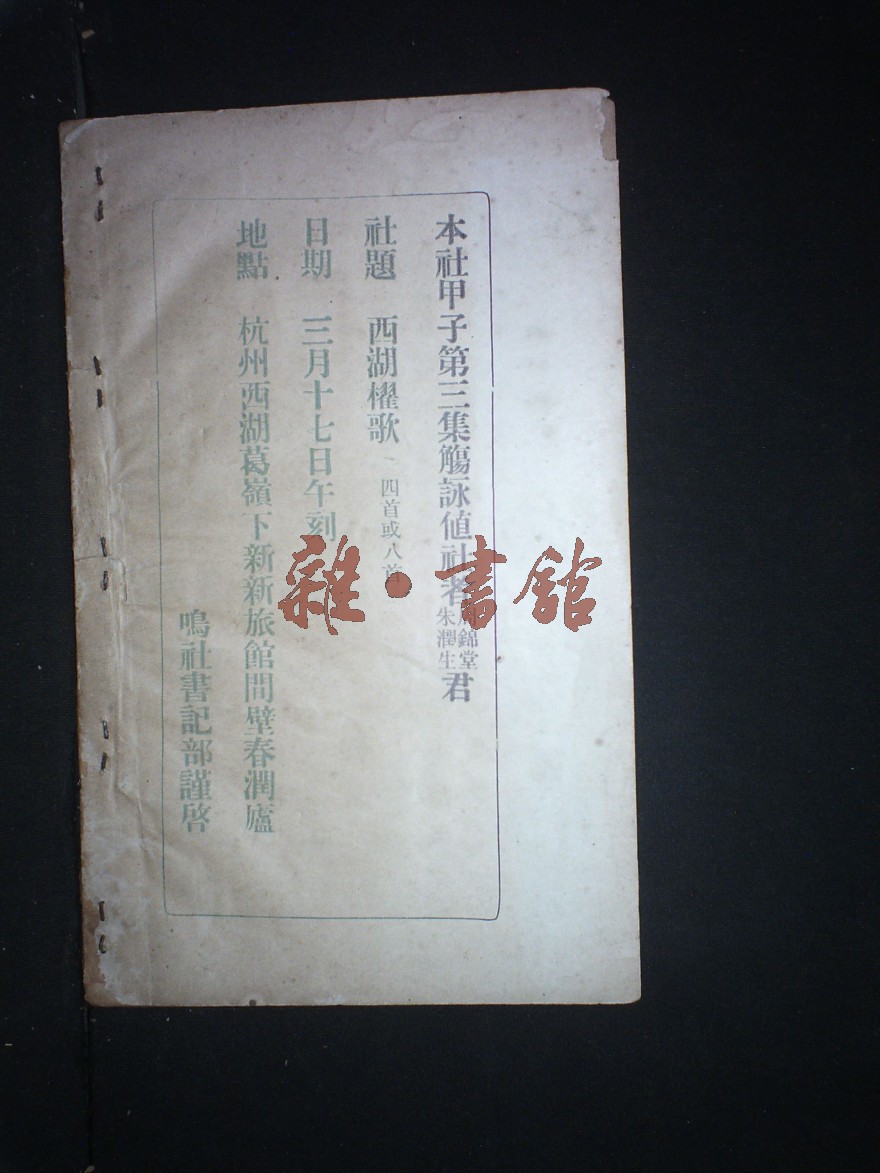 本社甲子第三集觴詠值社者 錦堂 朱潤生 君
社題 西湖櫂歌 四首或八首
日期 三月十七日午刻
地點 杭州西湖葛嶺下新新旅館間壁春潤廬
鳴社書記部謹啓
雜·書館